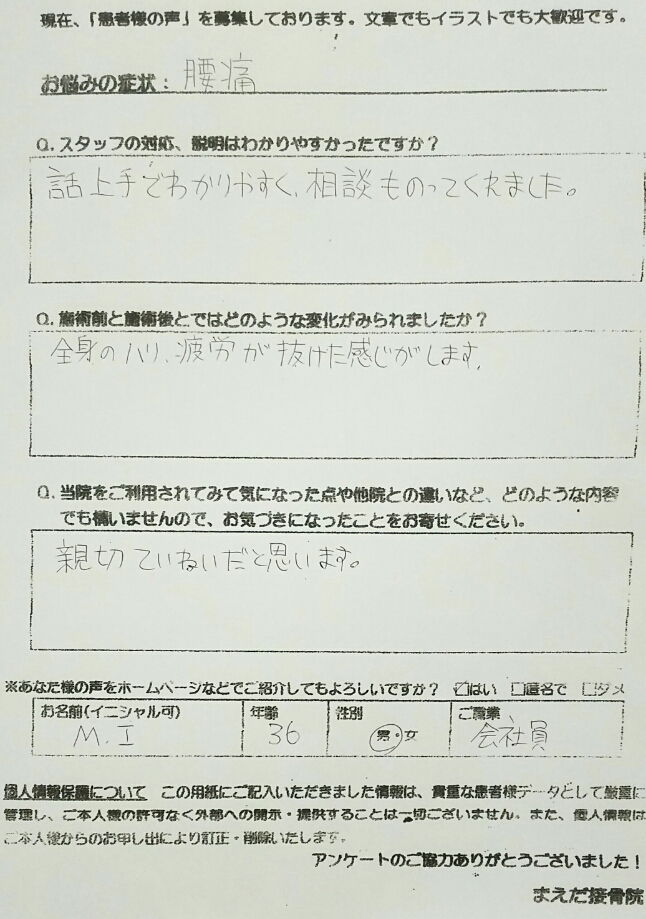 現在、「患者様の声」を募集しております。文章でもイラストでも大歓迎です。
お悩みの症状： 腰痛
Q. スタッフの対応、説明はわかりやすかったですか？
話上手でわかりやすく、相談ものってくれました。
Q. 施術前と施術後とではどのような変化がみられましたか？
全身のハリ、疲労が抜けた感じがします。
Q. 当院をご利用されてみて気になった点や他院との違いなど、どのような内容
でも構いませんので、お気づきになったことをお寄せください。
親切ていねいだと思います。
※あなた様の声をホームページなどでご紹介してもよろしいですか？ ☑はい □匿名で □ダメ
お名前(イニシャル可) 年齢 性別 ご職業
M.I 36 男・女 会社員
個人情報保護について この用紙にご記入いただきました情報は、貴重な患者様データとして厳重に
管理し、ご本人様の許可なく外部への開示・提供することは一切ございません。また、個人情報は
ご本人様からのお申し出により訂正・削除いたします。
アンケートのご協力ありがとうございました！
まえだ接骨院